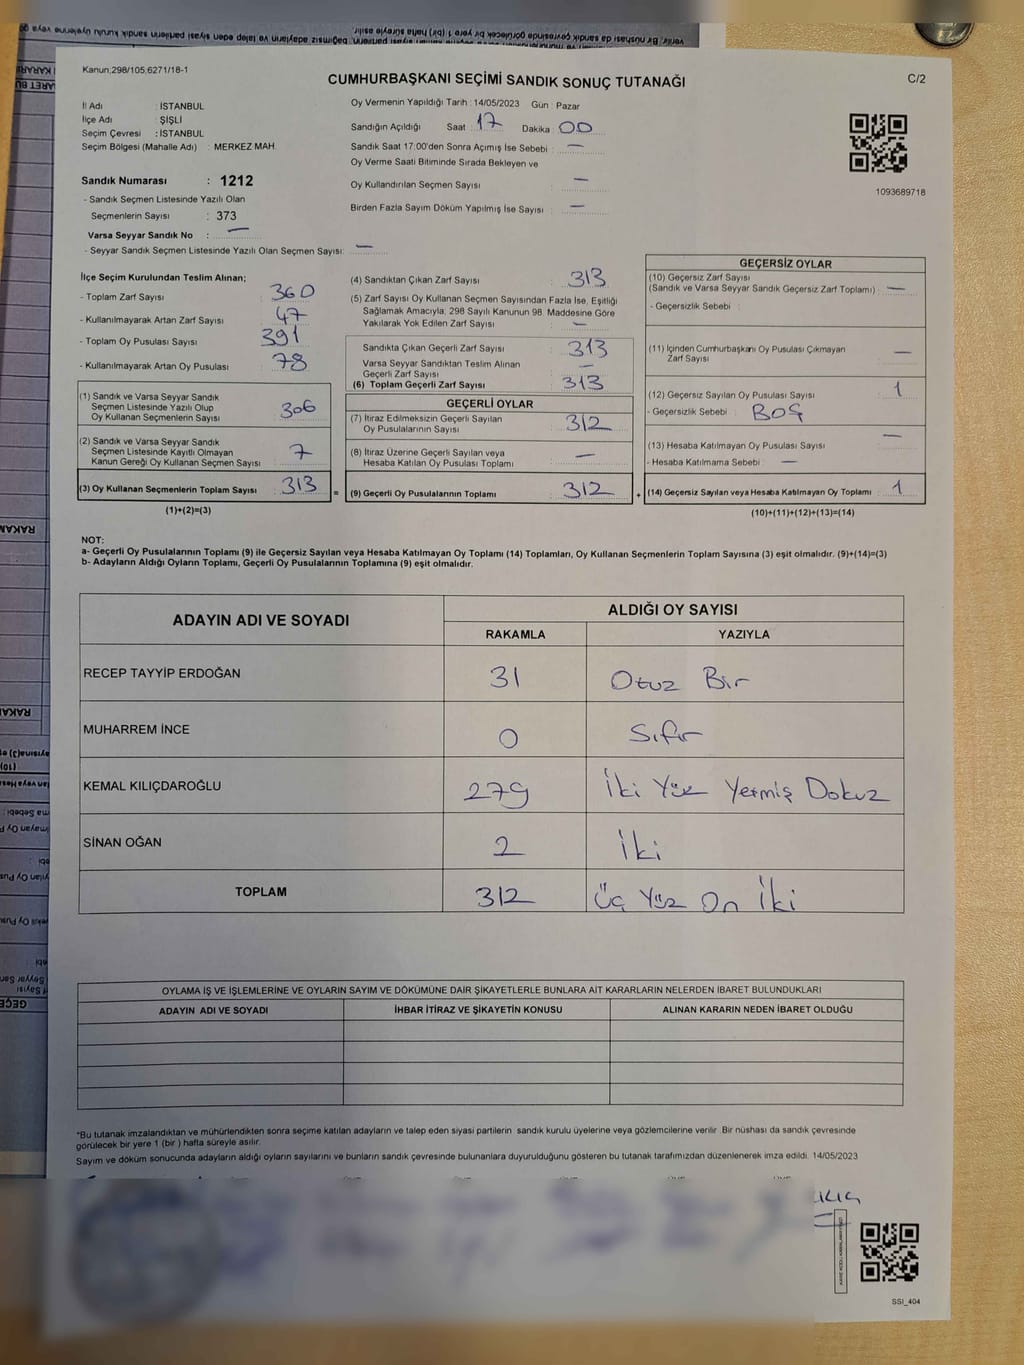 Kanun;298/105;6271/18-1
CUMHURBAŞKANI SEÇİMİ SANDIK SONUÇ TUTANAĞI
C/2
İl Adı : İSTANBUL
İlçe Adı : ŞİŞLİ
Seçim Çevresi : İSTANBUL
Seçim Bölgesi (Mahalle Adı) : MERKEZ MAH.
Sandık Numarası : 1212
- Sandık Seçmen Listesinde Yazılı Olan
Seçmenlerin Sayısı : 373
Varsa Seyyar Sandık No : —
- Seyyar Sandık Seçmen Listesinde Yazılı Olan Seçmen Sayısı: —
Oy Vermenin Yapıldığı Tarih : 14/05/2023 Gün : Pazar
Sandığın Açıldığı Saat : 17 Dakika : 00
Sandık Saat 17:00'den Sonra Açımış İse Sebebi : —
Oy Verme Saati Bitiminde Sırada Bekleyen ve
Oy Kullandırılan Seçmen Sayısı : —
Birden Fazla Sayım Döküm Yapılmış İse Sayısı : —
1093689718
İlçe Seçim Kurulundan Teslim Alınan;
- Toplam Zarf Sayısı : 360
- Kullanılmayarak Artan Zarf Sayısı : 47
- Toplam Oy Pusulası Sayısı : 391
- Kullanılmayarak Artan Oy Pusulası : 78
(1) Sandık ve Varsa Seyyar Sandık
Seçmen Listesinde Yazılı Olup
Oy Kullanan Seçmenlerin Sayısı : 306
(2) Sandık ve Varsa Seyyar Sandık
Seçmen Listesinde Kayıtlı Olmayan
Kanun Gereği Oy Kullanan Seçmen Sayısı : 7
(3) Oy Kullanan Seçmenlerin Toplam Sayısı : 313
(1)+(2)=(3)
(4) Sandıktan Çıkan Zarf Sayısı : 313
(5) Zarf Sayısı Oy Kullanan Seçmen Sayısından Fazla İse, Eşitliği
Sağlamak Amacıyla; 298 Sayılı Kanunun 98. Maddesine Göre
Yakılarak Yok Edilen Zarf Sayısı : —
Sandıkta Çıkan Geçerli Zarf Sayısı : 313
Varsa Seyyar Sandıktan Teslim Alınan
Geçerli Zarf Sayısı : —
(6) Toplam Geçerli Zarf Sayısı : 313
GEÇERLİ OYLAR
(7) İtiraz Edilmeksizin Geçerli Sayılan
Oy Pusulalarının Sayısı : 312
(8) İtiraz Üzerine Geçerli Sayılan veya
Hesaba Katılan Oy Pusulası Toplamı : —
= (9) Geçerli Oy Pusulalarının Toplamı : 312
GEÇERSİZ OYLAR
(10) Geçersiz Zarf Sayısı
(Sandık ve Varsa Seyyar Sandık Geçersiz Zarf Toplamı) : —
- Geçersizlik Sebebi :
(11) İçinden Cumhurbaşkanı Oy Pusulası Çıkmayan
Zarf Sayısı : —
(12) Geçersiz Sayılan Oy Pusulası Sayısı : 1
- Geçersizlik Sebebi : BOŞ
(13) Hesaba Katılmayan Oy Pusulası Sayısı : —
- Hesaba Katılmama Sebebi : —
+ (14) Geçersiz Sayılan veya Hesaba Katılmayan Oy Toplamı : 1
(10)+(11)+(12)+(13)=(14)
NOT:
a- Geçerli Oy Pusulalarının Toplamı (9) ile Geçersiz Sayılan veya Hesaba Katılmayan Oy Toplamı (14) Toplamları, Oy Kullanan Seçmenlerin Toplam Sayısına (3) eşit olmalıdır. (9)+(14)=(3)
b- Adayların Aldığı Oyların Toplamı, Geçerli Oy Pusulalarının Toplamına (9) eşit olmalıdır.
ADAYIN ADI VE SOYADI
ALDIĞI OY SAYISI
RAKAMLA YAZIYLA
RECEP TAYYİP ERDOĞAN 31 Otuz Bir
MUHARREM İNCE 0 Sıfır
KEMAL KILIÇDAROĞLU 279 İki Yüz Yetmiş Dokuz
SİNAN OĞAN 2 İki
TOPLAM 312 Üç Yüz On İki
OYLAMA İŞ VE İŞLEMLERİNE VE OYLARIN SAYIM VE DÖKÜMÜNE DAİR ŞİKAYETLERLE BUNLARA AİT KARARLARIN NELERDEN İBARET BULUNDUKLARI
ADAYIN ADI VE SOYADI İHBAR İTİRAZ VE ŞİKAYETİN KONUSU ALINAN KARARIN NEDEN İBARET OLDUĞU
*Bu tutanak imzalandıktan ve mühürlendikten sonra seçime katılan adayların ve talep eden siyasi partilerin sandık kurulu üyelerine veya gözlemcilerine verilir. Bir nüshası da sandık çevresinde
görülecek bir yere 1 (bir ) hafta süreyle asılır.
Sayım ve döküm sonucunda adayların aldığı oyların sayılarını ve bunların sandık çevresinde bulunanlara duyurulduğunu gösteren bu tutanak tarafımızdan düzenlenerek imza edildi. 14/05/2023
SSI_404